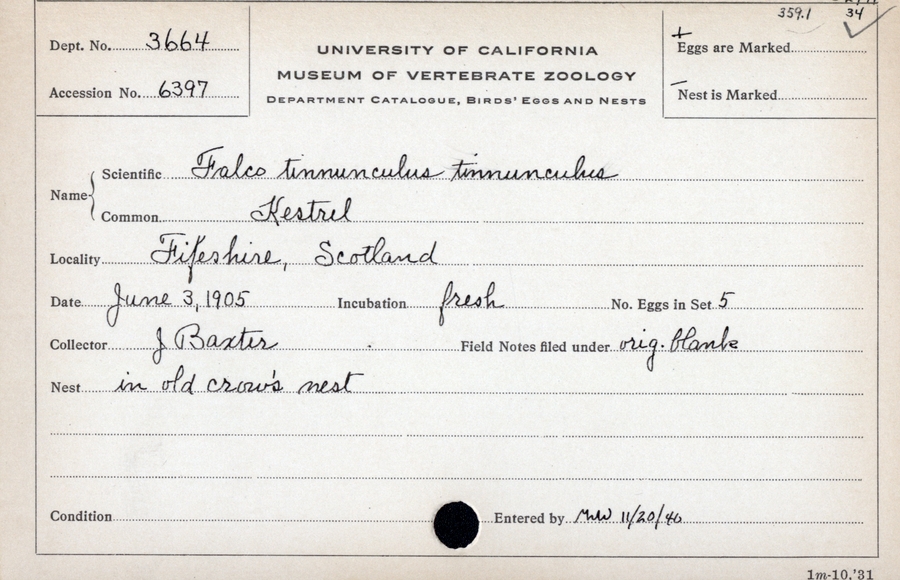 359.1 34
Dept. No. 3664
Accession No. 6397
UNIVERSITY OF CALIFORNIA
MUSEUM OF VERTEBRATE ZOOLOGY
DEPARTMENT CATALOGUE, BIRDS' EGGS AND NESTS
+
Eggs are Marked
–
Nest is Marked
Name
Scientific Falco tinnunculus tinnunculus
Common Kestrel
Locality Fifeshire, Scotland
Date June 3, 1905 Incubation fresh No. Eggs in Set 5
Collector J Baxter Field Notes filed under orig. blank
Nest in old crow's nest
Condition Entered by MW 11/20/46
1m-10,'31